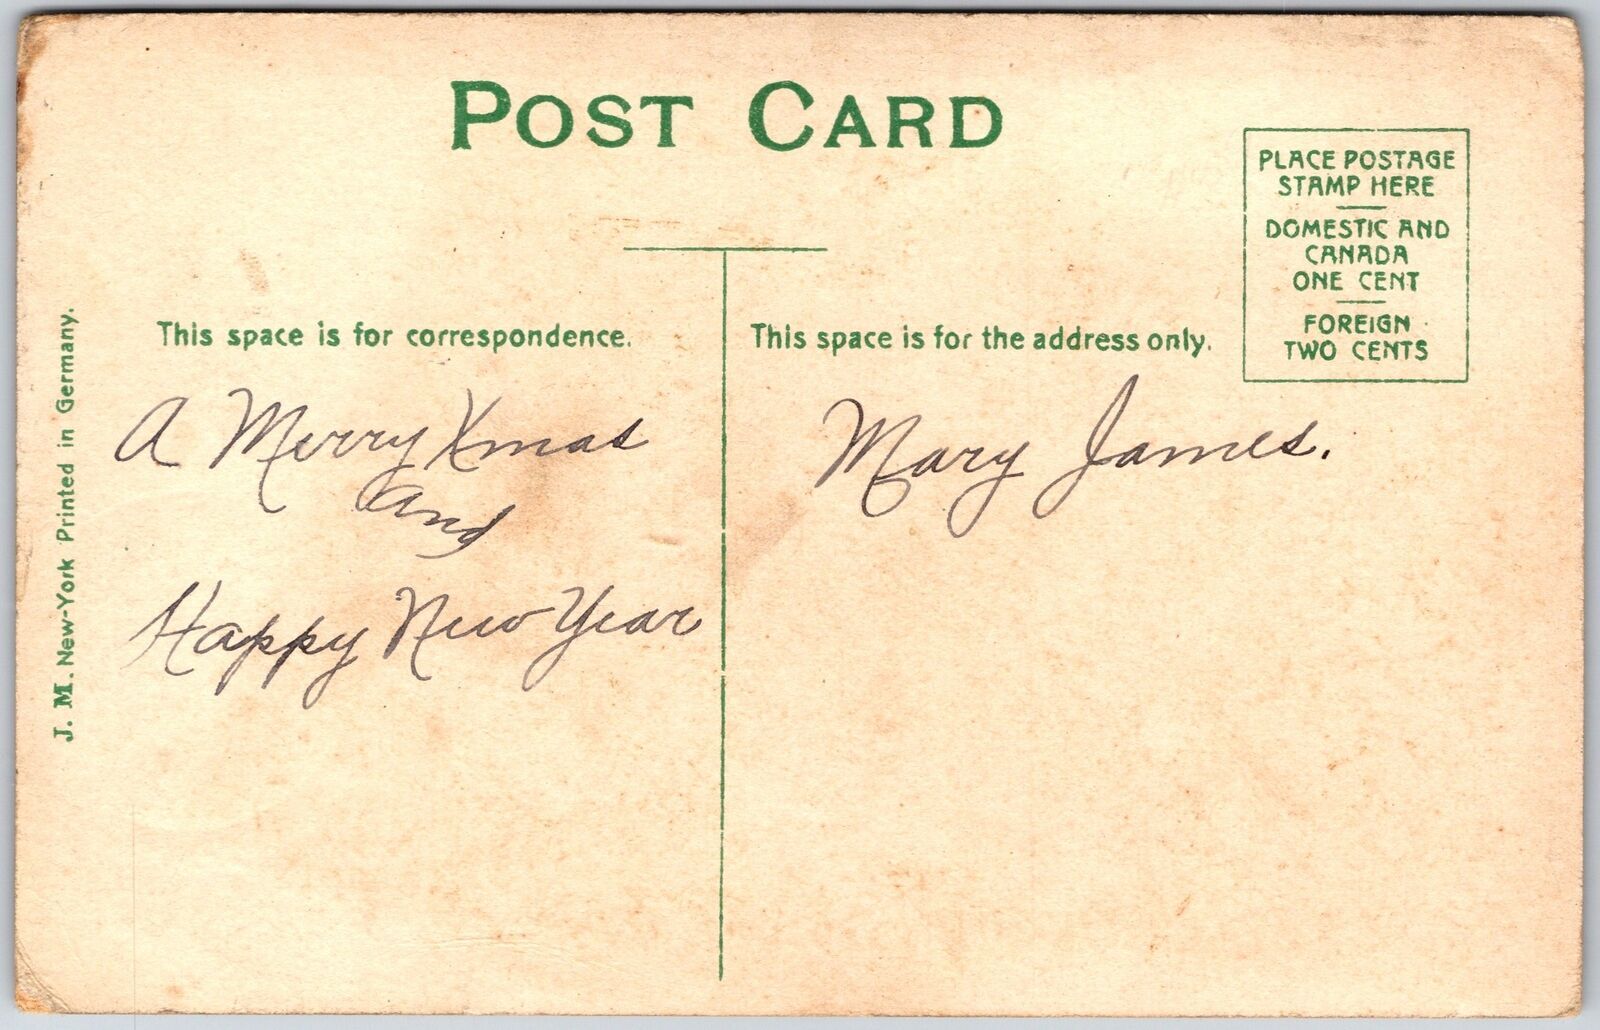 POST CARD
PLACE POSTAGE
STAMP HERE
DOMESTIC AND
CANADA
ONE CENT
FOREIGN
TWO CENTS
This space is for correspondence.
This space is for the address only.
A Merry Xmas
and
Happy New Year
Mary James.
J. M. New-York Printed in Germany.